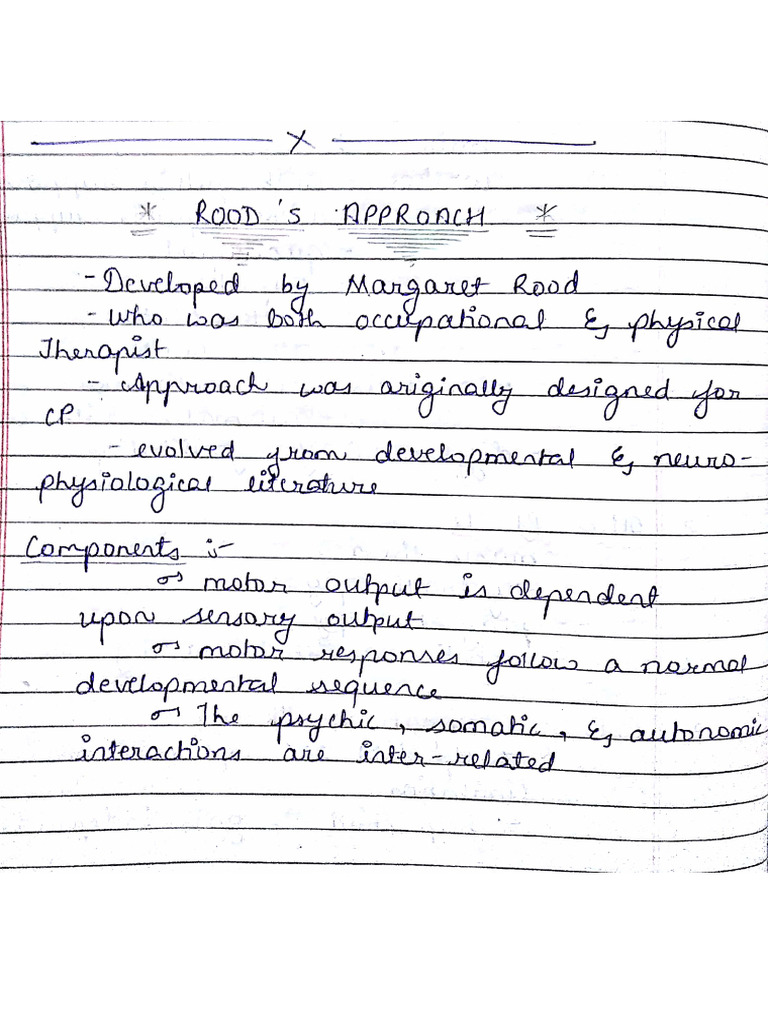 X
* ROOD'S APPROACH *
- Developed by Margaret Rood
- Who was both occupational & physical
Therapist
- Approach was originally designed for
CP
- evolved from developmental & neuro-
physiological literature
Components :-
motor output is dependent
upon sensary output
motor responses follow a normal
developmental sequence
The psychic, somatic, & autonomic
interactions are inter-related